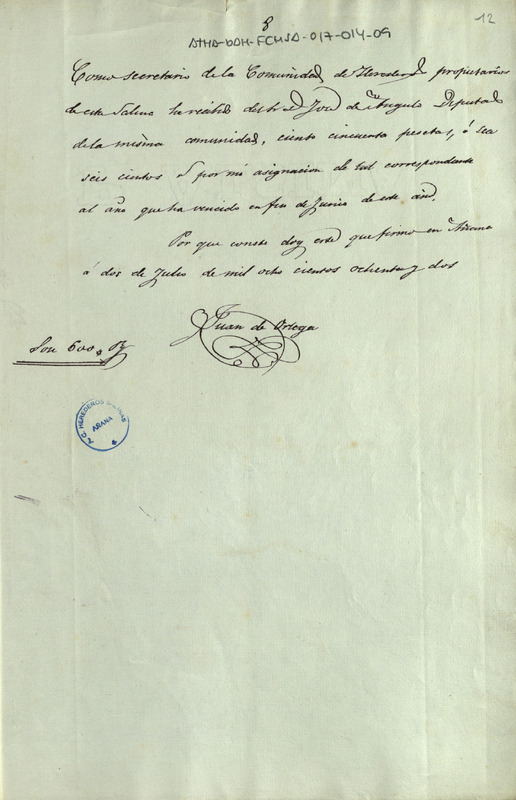 8
12
ATHA-DAH-FCMSA-017-014-09
Como secretario de la Comunidad de Herederos propietarios
de este Salino he recibido del Sr. D. José de Angulo Diputado
de la misma comunidad, ciento cincuenta pesetas, ó sea
seis cientos por mi asignacion de tal correspondiente
al año que ha vencido en fin de Junio de este año.
Por que conste doy este que firmo en Añana
á dos de Julio de mil ocho cientos ochenta y dos
Juan de Ortega
Son 600
HEREDEROS SALINAS
AÑANA